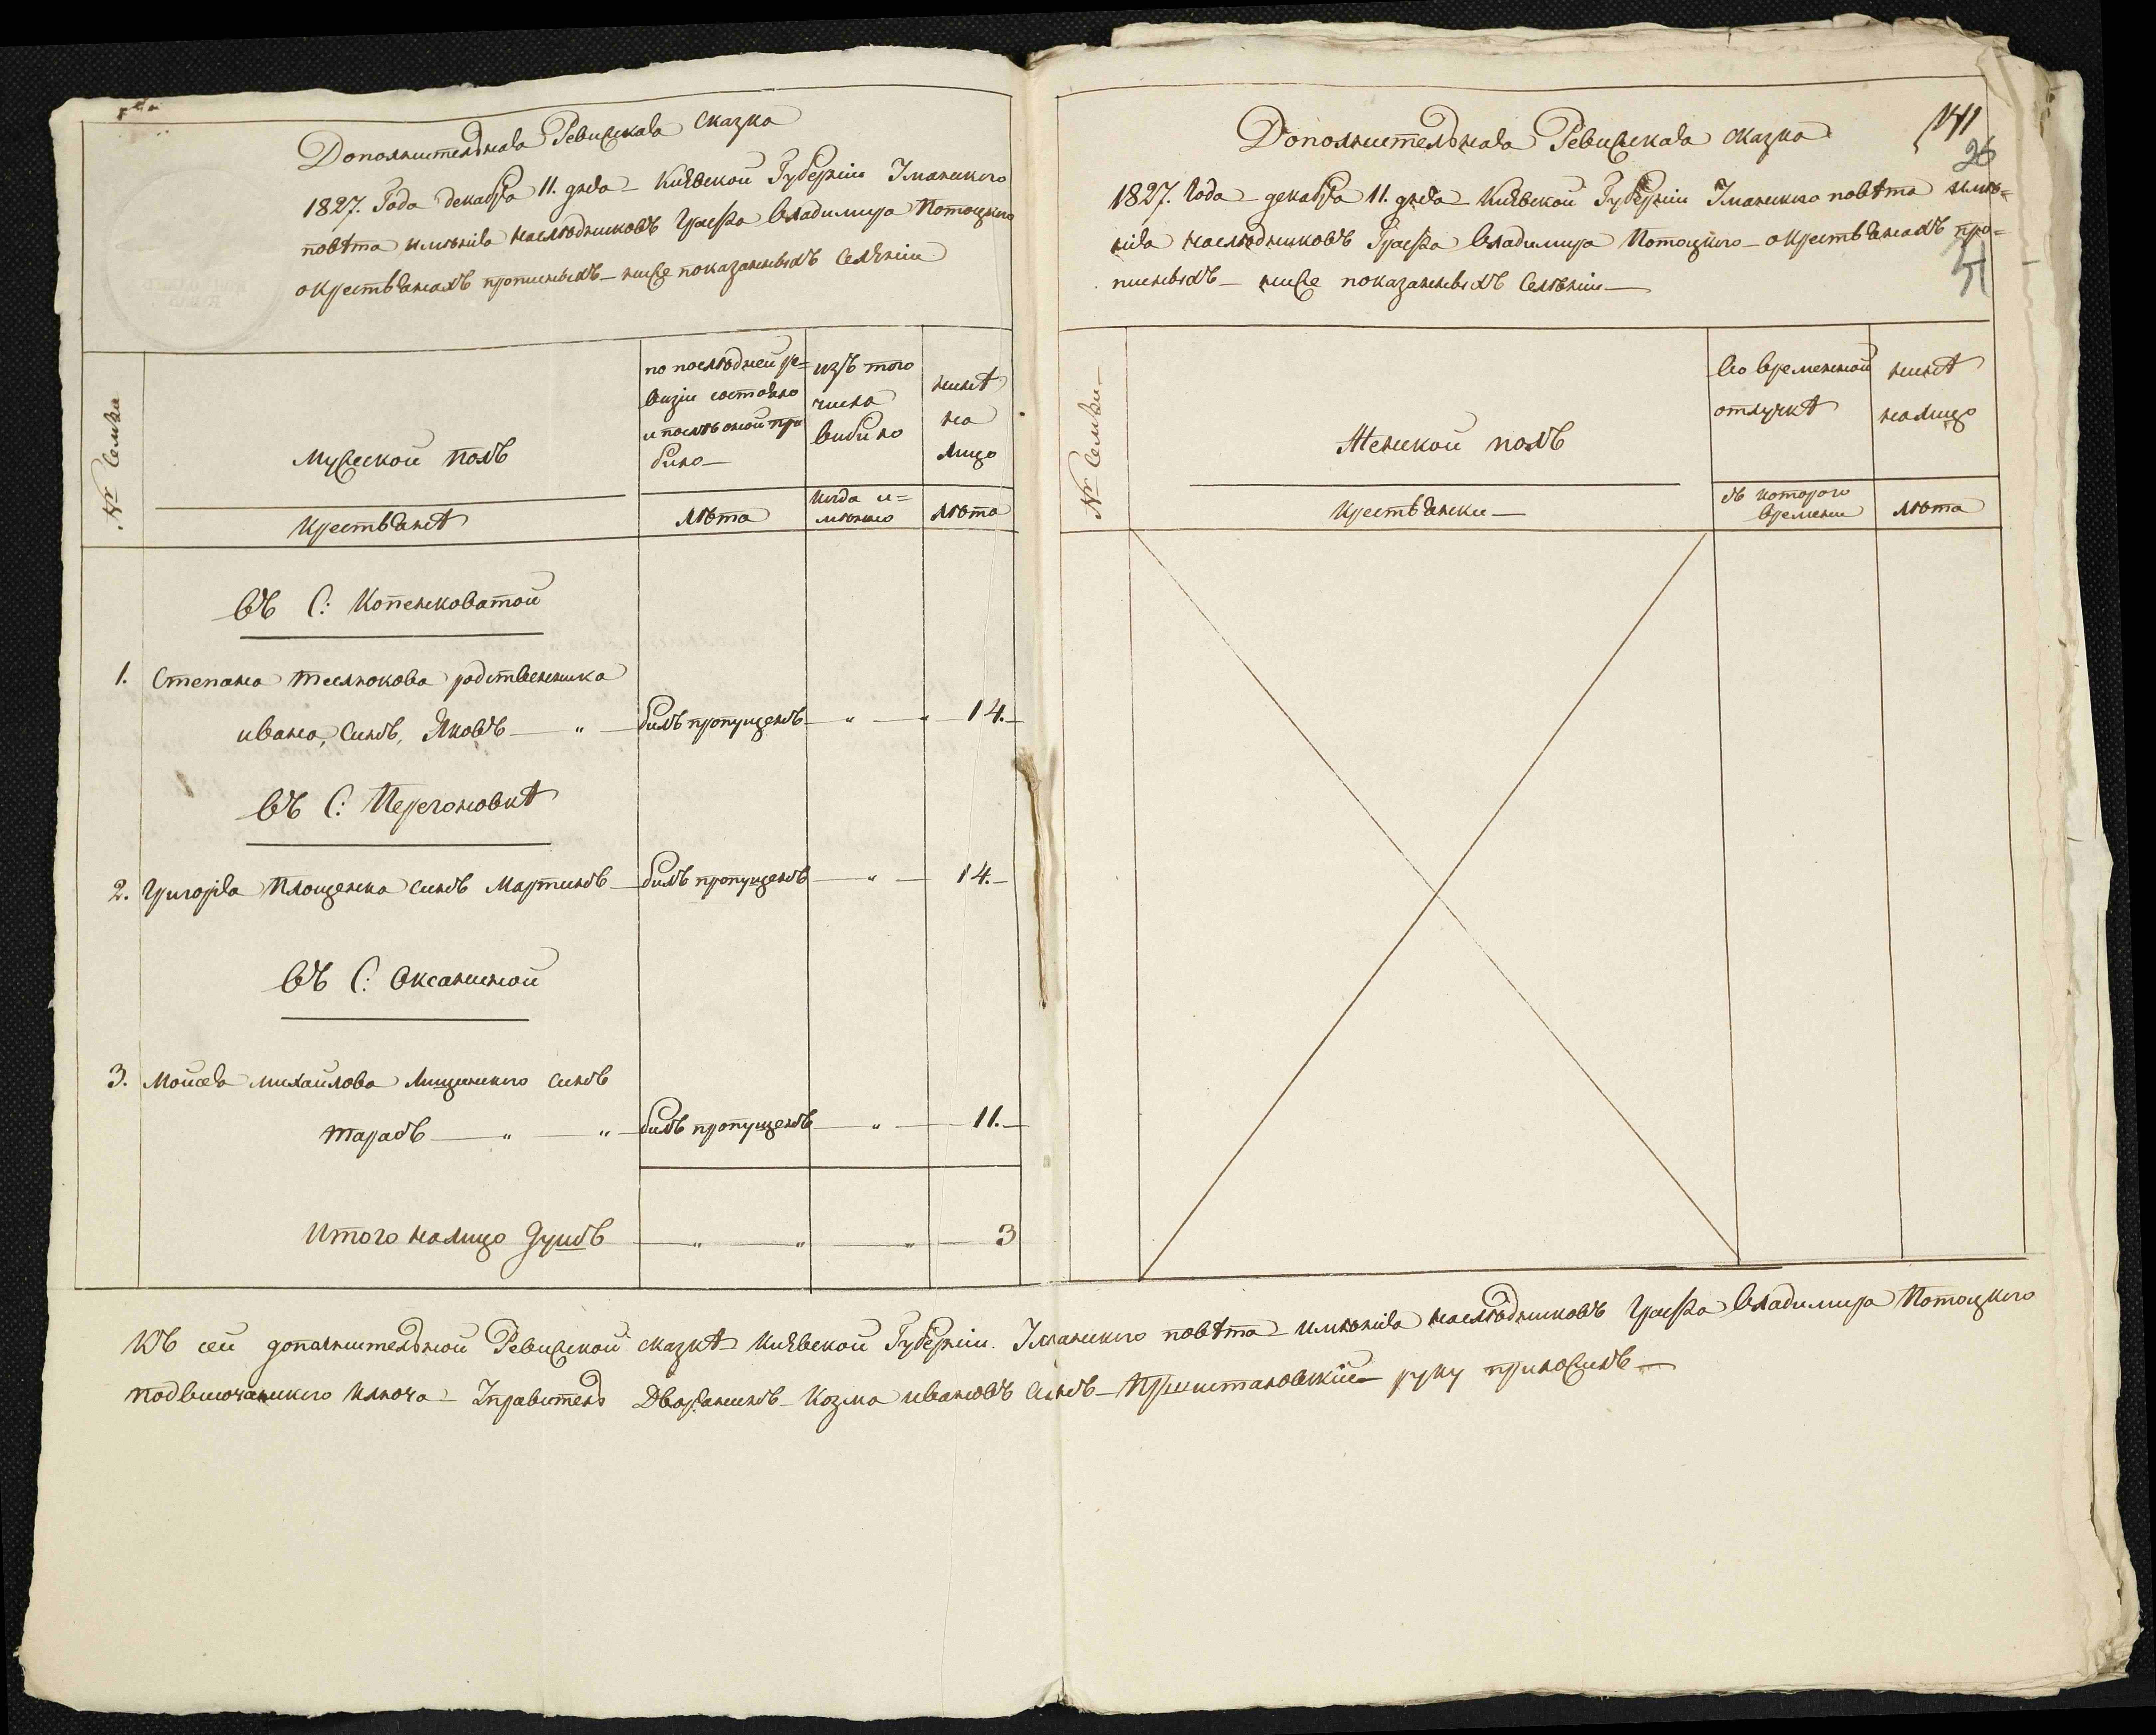 Дополнительная Ревижская сказка
1827. Года декабря 11. дня Киевской Губернии Уманского
повета имѣния наслѣдниковъ Графа Владимира Потоцкого
о крестьянахъ прописныхъ ниже показанныхъ Селении
№ Семьи
Мужеской полъ
по послѣдней ре=
визии состояло
и послѣ оной при
было
изъ того
числа
выбыло
ныне
на
лицо
Крестьяне
лѣта
когда и=
мѣнно
лѣта
въ С: Копенковатой
1. Степана Теслюкова родственника
ивана, синъ, Яковъ — " — былъ пропущенъ — " — " 14.
въ С: Перегоновке
2. Григория Площенка синъ Мартинъ — былъ пропущенъ — " — 14.
въ С: Оксаниной
3. Моисея михайлова Лищинского синъ
тарасъ — " — " — былъ пропущенъ — " — 11.
Итого налицо душъ — " — " — " — 3
Дополнительная Ревижская сказка
141
26
1827. Года декабря 11. дня Киевской Губернии Уманского повета имѣ=
ния наслѣдниковъ Графа Владимира Потоцкого о крестьянахъ про=
писныхъ ниже показанныхъ Селѣнии
№ Семьи
Женской полъ
во временной
отлучке
ныне
налицо
Крестьянки
съ которого
времени
лѣта
Къ сей дополнительной Ревижской сказке Киевской Губернии Уманского повета имѣния наслѣдниковъ Графа Владимира Потоцкого
Подвисочанского Ключа Управитель Дворянинъ Козма ивановъ синъ руку приложилъ